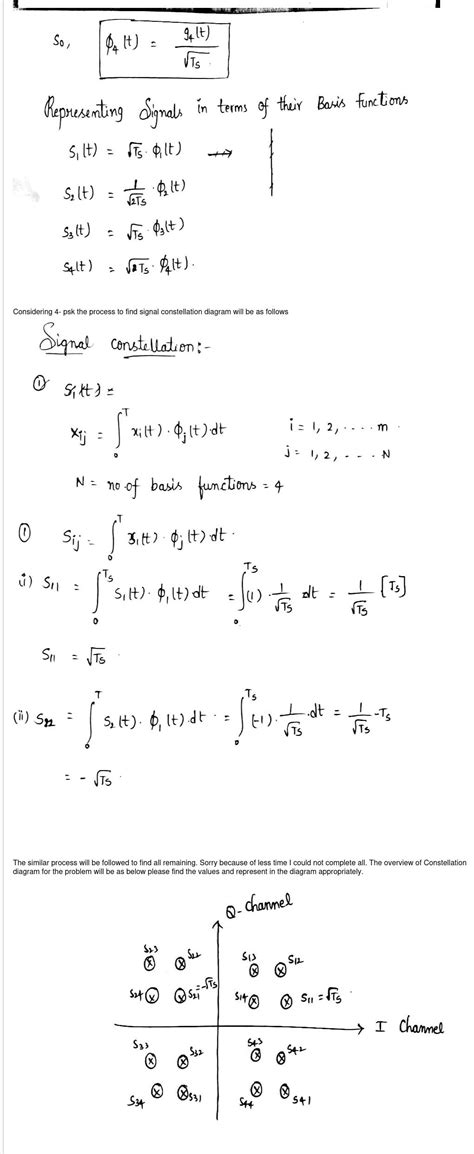 So, ϕ₄(t) = g₄(t) / √Ts
Representing Signals in terms of their Basis functions
S₁(t) = √Ts · ϕ₁(t) →
S₂(t) = 1/√2Ts · ϕ₂(t)
S₃(t) = √Ts · ϕ₃(t)
S₄(t) = √2Ts · ϕ₄(t).
Considering 4- psk the process to find signal constellation diagram will be as follows
Signal constellation:-
① S₁(t) =
Xij = ∫₀ᵀ xi(t) · ϕj(t) dt i = 1, 2, .... m
j = 1, 2, - - - N
N = no of basis functions = 4
① Sij = ∫₀ᵀ x₁(t) · ϕj(t) dt.
i) S₁₁ = ∫₀^Ts S₁(t) · ϕ₁(t) dt = ∫₀^Ts (1) · 1/√Ts dt = 1/√Ts [Ts]
S₁₁ = √Ts
(ii) S₂₂ = ∫₀ᵀ S₂(t) · ϕ₁(t) dt = ∫₀^Ts (-1) · 1/√Ts · dt = 1/√Ts -Ts
= - √Ts
The similar process will be followed to find all remaining. Sorry because of less time I could not complete all. The overview of Constellation
diagram for the problem will be as below please find the values and represent in the diagram appropriately.
Q- channel
S23 S22 S13 S12
S24 S21 = -√Ts S14 S11 = √Ts
I channel
S33 S32 S43 S42
S34 S31 S44 S41